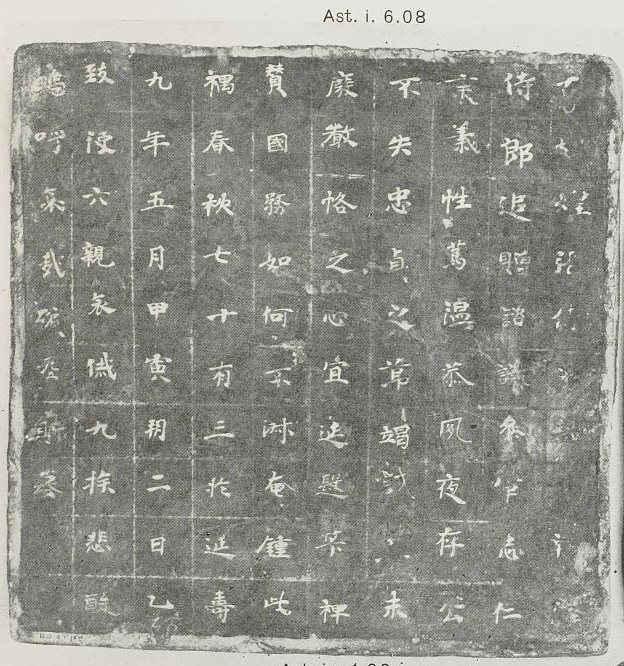 Ast. i. 6.08
侍郎追贈諮議參軍志仁
義性篤溫恭夙夜存公
不失忠貞之節竭未
廢嚴恪之心宜延遐筭裨
贊國務如何不淋奄鍾此
禍春秋七十有三於延壽
九年五月甲寅朔二日乙
致使六親哀慽九族悲酸
嗚呼哀哉殯斯墓